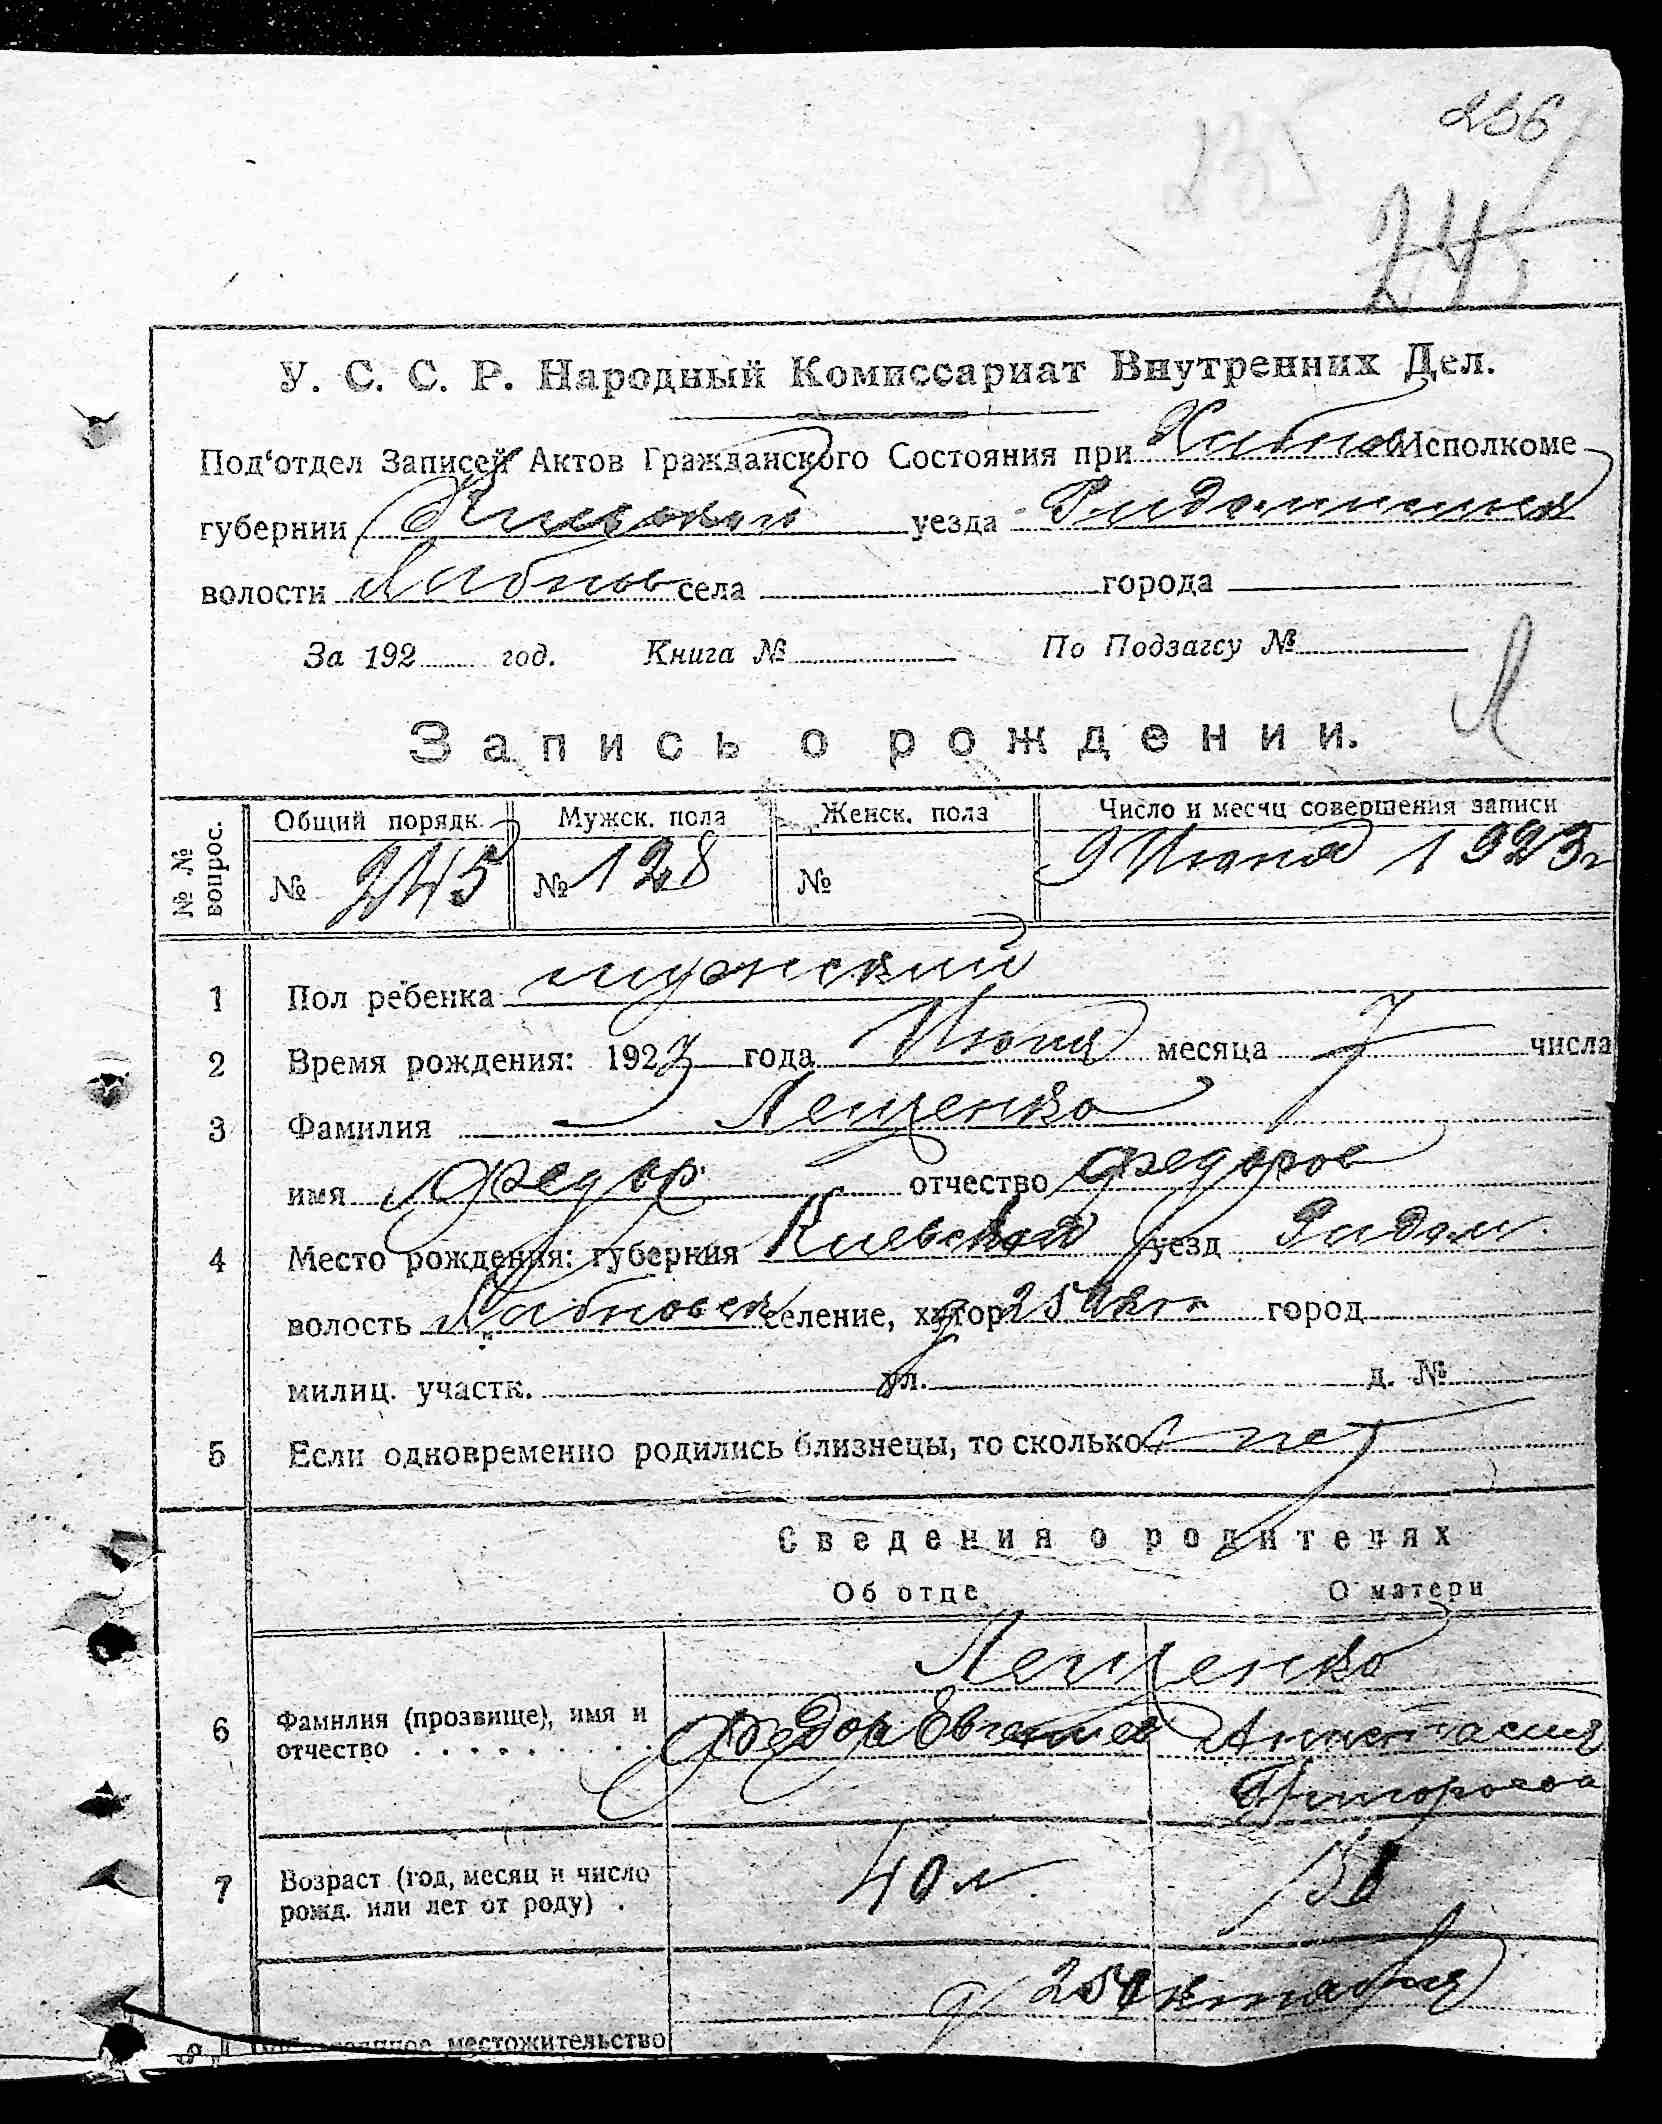 236
235
245
У. С. С. Р. Народный Комиссариат Внутренних Дел.
Под‘отдел Записей Актов Гражданского Состояния при Хабнов Исполкоме
губернии Киевской уезда
волости Хабнов села города
За 192 год. Книга № По Подзагсу №
Л
Запись о рождении.
№ № вопрос. Общий порядк. Мужск. пола Женск. пола Число и месяц совершения записи
№ 245 № 128 № 9 Июня 1923 г
1 Пол ребенка мужский
2 Время рождения: 1923 года Июня месяца 7 числа
3 Фамилия Лещенко
имя Федор отчество Федоров
4 Место рождения: губерния Киевской уезд Радом.
волость Хабновск селение, хутор 25 Окт город
милиц. участк. ул. д. №
5 Если одновременно родились близнецы, то сколько нет
Сведения о родителях
Об отце О матери
Лещенко
6 Фамилия (прозвище), имя и Федор Евгениев Анастасия
отчество . . . . . . . . . Григорьева
7 Возраст (год, месяц и число 40 л
рожд. или лет от роду) .
д 25 Октября
8 местожительство